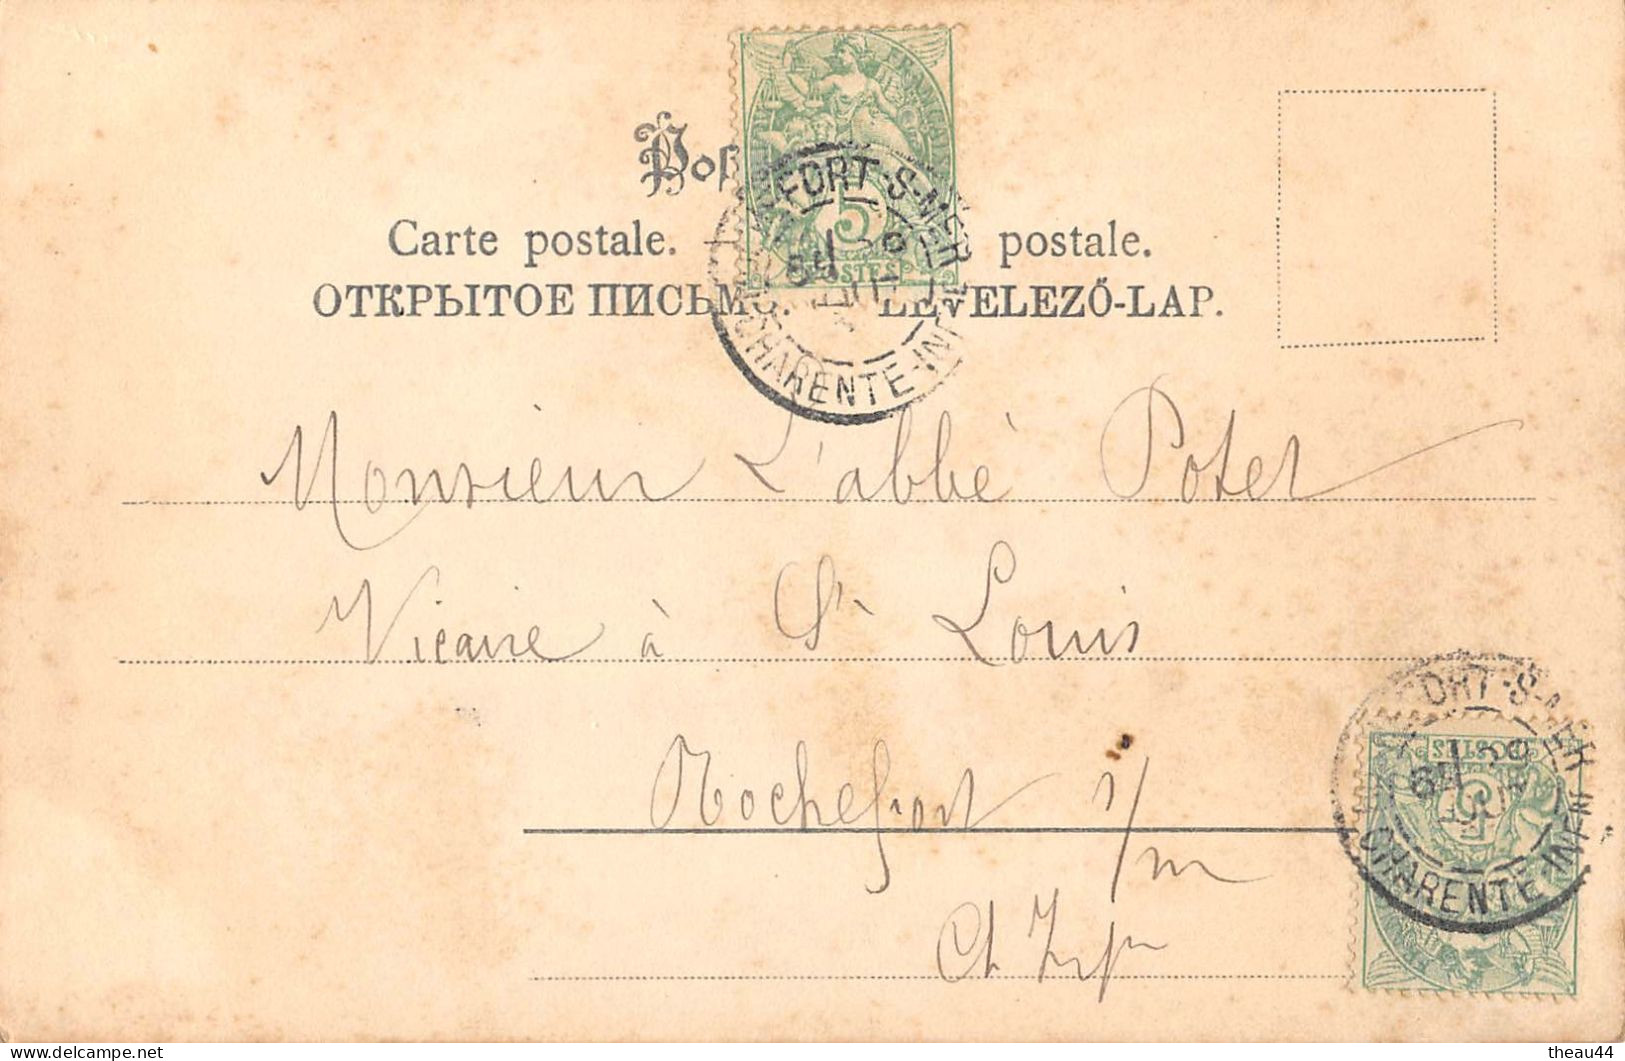 Carte postale. postale.
ОТКРЫТОЕ ПИСЬМО. LEVELEZŐ-LAP.
FORT-S-MER
5
POSTES
CHARENTE-INF
Monsieur L'abbé Potet
Vicaire à St Louis
Rochefort s/m
Ch Infre
ORT-S-MER
POSTES
5
CHARENTE-INF
theau44